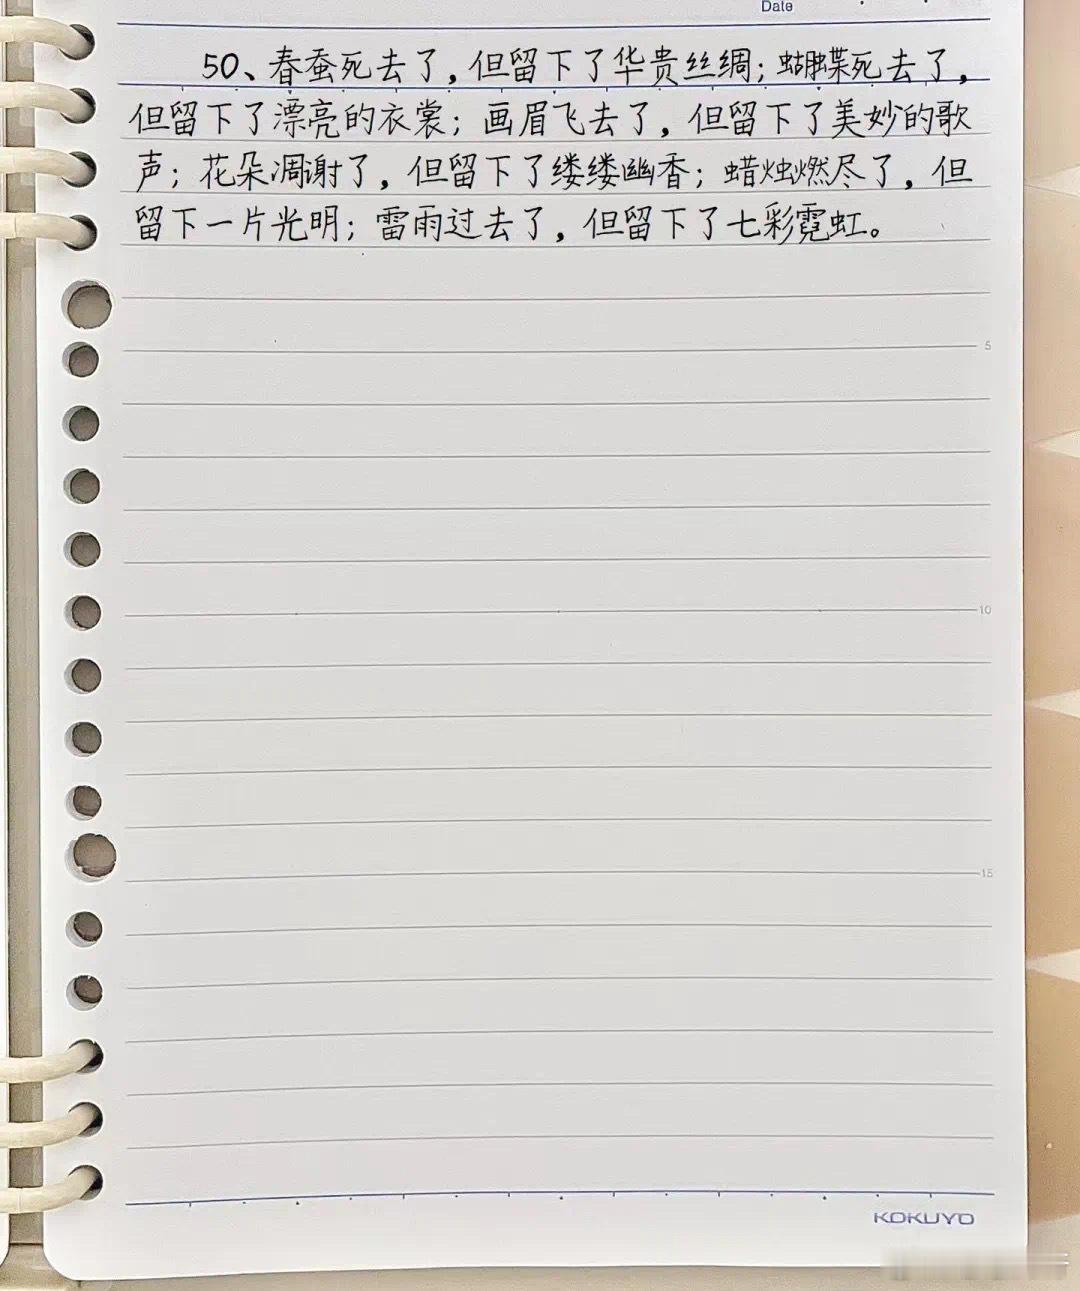 Date
50、春蚕死去了，但留下了华贵丝绸；蝴蝶死去了，
但留下了漂亮的衣裳；画眉飞去了，但留下了美妙的歌
声；花朵凋谢了，但留下了缕缕幽香；蜡烛燃尽了，但
留下一片光明；雷雨过去了，但留下了七彩霓虹。
5
10
15
KOKUYO